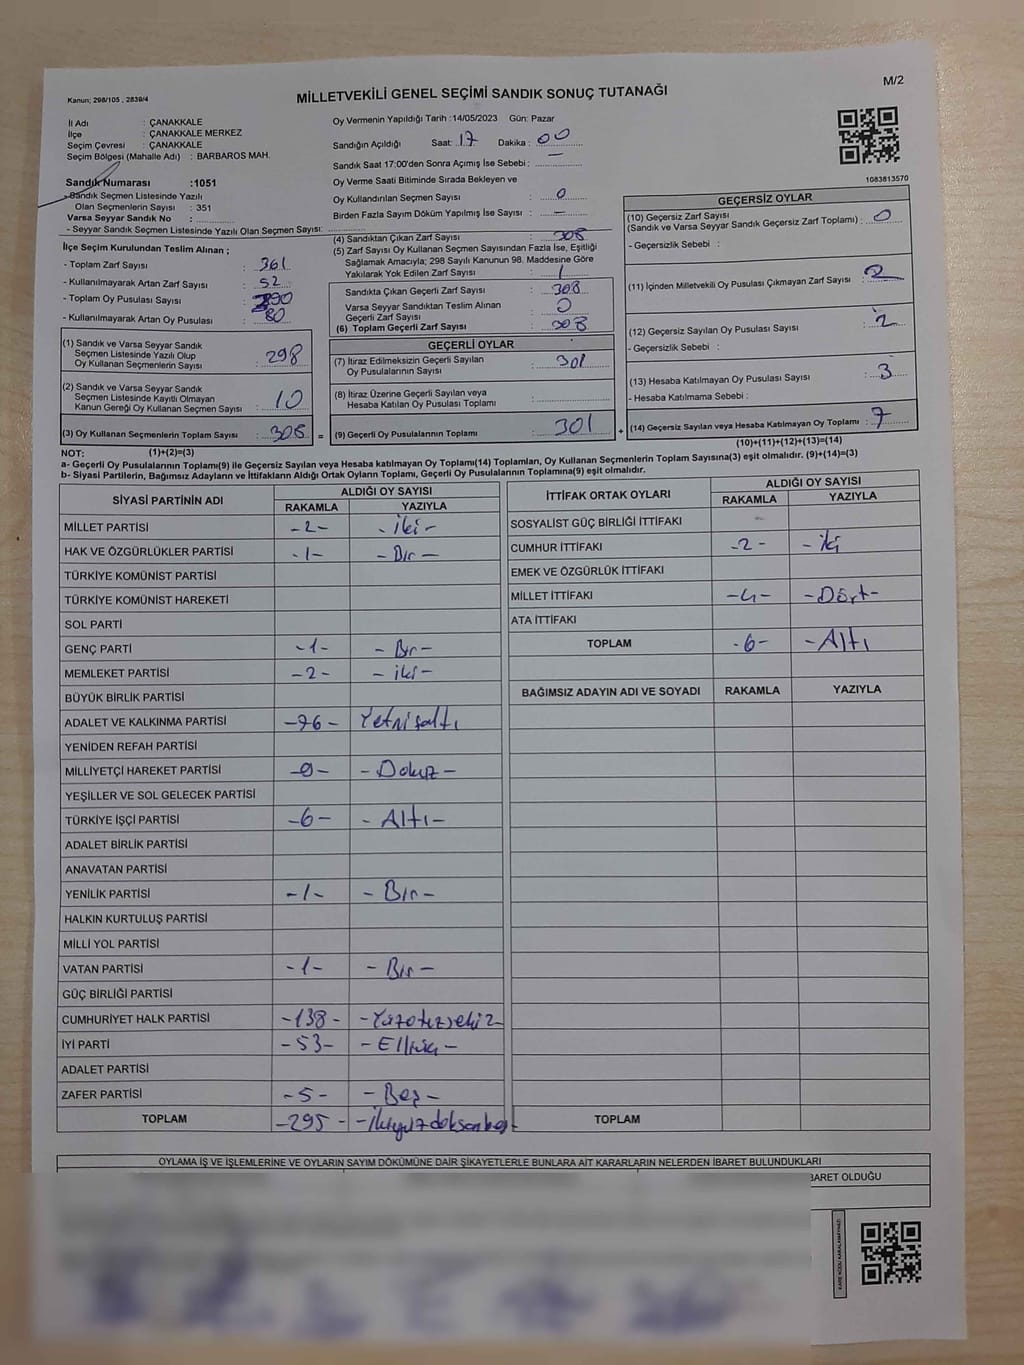 M/2
Kanun; 298/105 , 2839/4
MİLLETVEKİLİ GENEL SEÇİMİ SANDIK SONUÇ TUTANAĞI
İl Adı : ÇANAKKALE
İlçe : ÇANAKKALE MERKEZ
Seçim Çevresi : ÇANAKKALE
Seçim Bölgesi (Mahalle Adı) : BARBAROS MAH.
Sandık Numarası :1051
- Sandık Seçmen Listesinde Yazılı
Olan Seçmenlerin Sayısı : 351
Varsa Seyyar Sandık No :
- Seyyar Sandık Listesinde Yazılı Olan Seçmen Sayısı:
İlçe Seçim Kurulundan Teslim Alınan ;
- Toplam Zarf Sayısı : 361
- Kullanılmayarak Artan Zarf Sayısı : 52
- Toplam Oy Pusulası Sayısı : 390
- Kullanılmayarak Artan Oy Pusulası : 80
(1) Sandık ve Varsa Seyyar Sandık
Seçmen Listesinde Yazılı Olup
Oy Kullanan Seçmenlerin Sayısı : 298
(2) Sandık ve Varsa Seyyar Sandık
Seçmen Listesinde Kayıtlı Olmayan
Kanun Gereği Oy Kullanan Seçmen Sayısı : 10
(3) Oy Kullanan Seçmenlerin Toplam Sayısı : 308 =
Oy Vermenin Yapıldığı Tarih :14/05/2023 Gün: Pazar
Sandığın Açıldığı Saat: 17 Dakika : 00
Sandık Saat 17:00'den Sonra Açımış İse Sebebi : —
Oy Verme Saati Bitiminde Sırada Bekleyen ve
Oy Kullandırılan Seçmen Sayısı : 0
Birden Fazla Sayım Döküm Yapılmış İse Sayısı : —
(4) Sandıktan Çıkan Zarf Sayısı : 308
(5) Zarf Sayısı Oy Kullanan Seçmen Sayısından Fazla İse, Eşitliği
Sağlamak Amacıyla; 298 Sayılı Kanunun 98. Maddesine Göre
Yakılarak Yok Edilen Zarf Sayısı : 1
Sandıkta Çıkan Geçerli Zarf Sayısı : 308
Varsa Seyyar Sandıktan Teslim Alınan
Geçerli Zarf Sayısı : 0
(6) Toplam Geçerli Zarf Sayısı : 308
GEÇERLİ OYLAR
(7) İtiraz Edilmeksizin Geçerli Sayılan
Oy Pusulalarının Sayısı : 301
(8) İtiraz Üzerine Geçerli Sayılan veya
Hesaba Katılan Oy Pusulası Toplamı :
(9) Geçerli Oy Pusulalarının Toplamı : 301 +
1083813570
GEÇERSİZ OYLAR
(10) Geçersiz Zarf Sayısı
(Sandık ve Varsa Seyyar Sandık Geçersiz Zarf Toplamı) : 0
- Geçersizlik Sebebi :
(11) İçinden Milletvekili Oy Pusulası Çıkmayan Zarf Sayısı : 2
(12) Geçersiz Sayılan Oy Pusulası Sayısı : 2
- Geçersizlik Sebebi :
(13) Hesaba Katılmayan Oy Pusulası Sayısı : 3
- Hesaba Katılmama Sebebi :
(14) Geçersiz Sayılan veya Hesaba Katılmayan Oy Toplamı : 7
NOT: (1)+(2)=(3) (10)+(11)+(12)+(13)=(14)
a- Geçerli Oy Pusulalarının Toplamı(9) ile Geçersiz Sayılan veya Hesaba katılmayan Oy Toplamı(14) Toplamları, Oy Kullanan Seçmenlerin Toplam Sayısına(3) eşit olmalıdır. (9)+(14)=(3)
b- Siyasi Partilerin, Bağımsız Adayların ve İttifakların Aldığı Ortak Oyların Toplamı, Geçerli Oy Pusulalarının Toplamına(9) eşit olmalıdır.
SİYASİ PARTİNİN ADI ALDIĞI OY SAYISI
RAKAMLA YAZIYLA
MİLLET PARTİSİ -2- -İki-
HAK VE ÖZGÜRLÜKLER PARTİSİ -1- -Bir-
TÜRKİYE KOMÜNİST PARTİSİ
TÜRKİYE KOMÜNİST HAREKETİ
SOL PARTİ
GENÇ PARTİ -1- -Bir-
MEMLEKET PARTİSİ -2- -iki-
BÜYÜK BİRLİK PARTİSİ
ADALET VE KALKINMA PARTİSİ -76- Yetmişaltı
YENİDEN REFAH PARTİSİ
MİLLİYETÇİ HAREKET PARTİSİ -9- -Dokuz-
YEŞİLLER VE SOL GELECEK PARTİSİ
TÜRKİYE İŞÇİ PARTİSİ -6- -Altı-
ADALET BİRLİK PARTİSİ
ANAVATAN PARTİSİ
YENİLİK PARTİSİ -1- -Bir-
HALKIN KURTULUŞ PARTİSİ
MİLLİ YOL PARTİSİ
VATAN PARTİSİ -1- -Bir-
GÜÇ BİRLİĞİ PARTİSİ
CUMHURİYET HALK PARTİSİ -138- -Yüzotuzsekiz-
İYİ PARTİ -53- -Elliüç-
ADALET PARTİSİ
ZAFER PARTİSİ -5- -Beş-
TOPLAM -295- -İkiyüzdoksanbeş-
İTTİFAK ORTAK OYLARI ALDIĞI OY SAYISI
RAKAMLA YAZIYLA
SOSYALİST GÜÇ BİRLİĞİ İTTİFAKI -
CUMHUR İTTİFAKI -2- -iki
EMEK VE ÖZGÜRLÜK İTTİFAKI
MİLLET İTTİFAKI -4- -Dört-
ATA İTTİFAKI
TOPLAM -6- -Altı
BAĞIMSIZ ADAYIN ADI VE SOYADI RAKAMLA YAZIYLA
TOPLAM
OYLAMA İŞ VE İŞLEMLERİNE VE OYLARIN SAYIM DÖKÜMÜNE DAİR ŞİKAYETLERLE BUNLARA AİT KARARLARIN NELERDEN İBARET BULUNDUKLARI
BARET OLDUĞU
KARE KODU KARALAMAYINIZ!